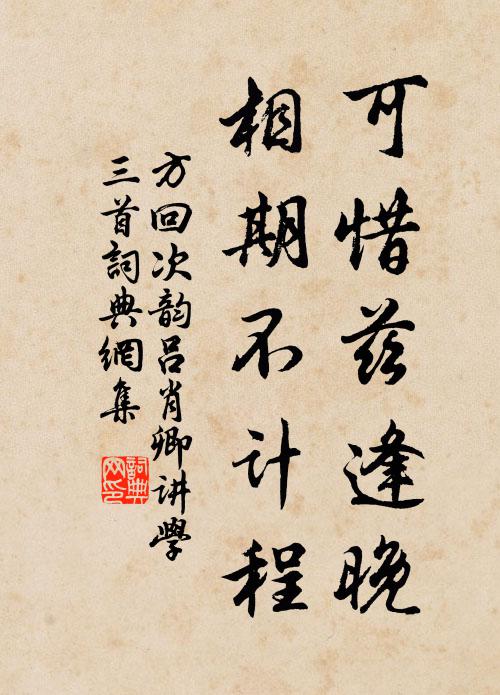 可惜茲逢晚
相期不计程
方回次韵吕肖卿讲學
三首詞典網集
詞典
网印